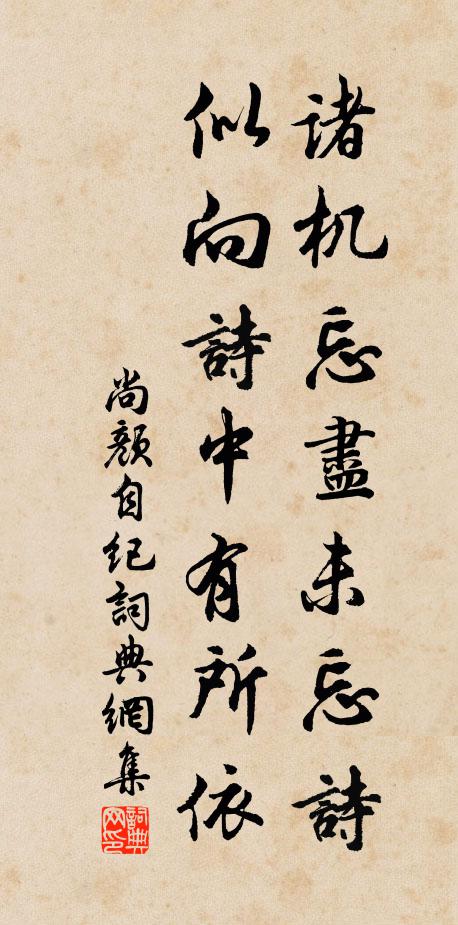 諸机忘盡未忘詩
似向詩中有所依
尚顏自紀詞典網集
詞典网印